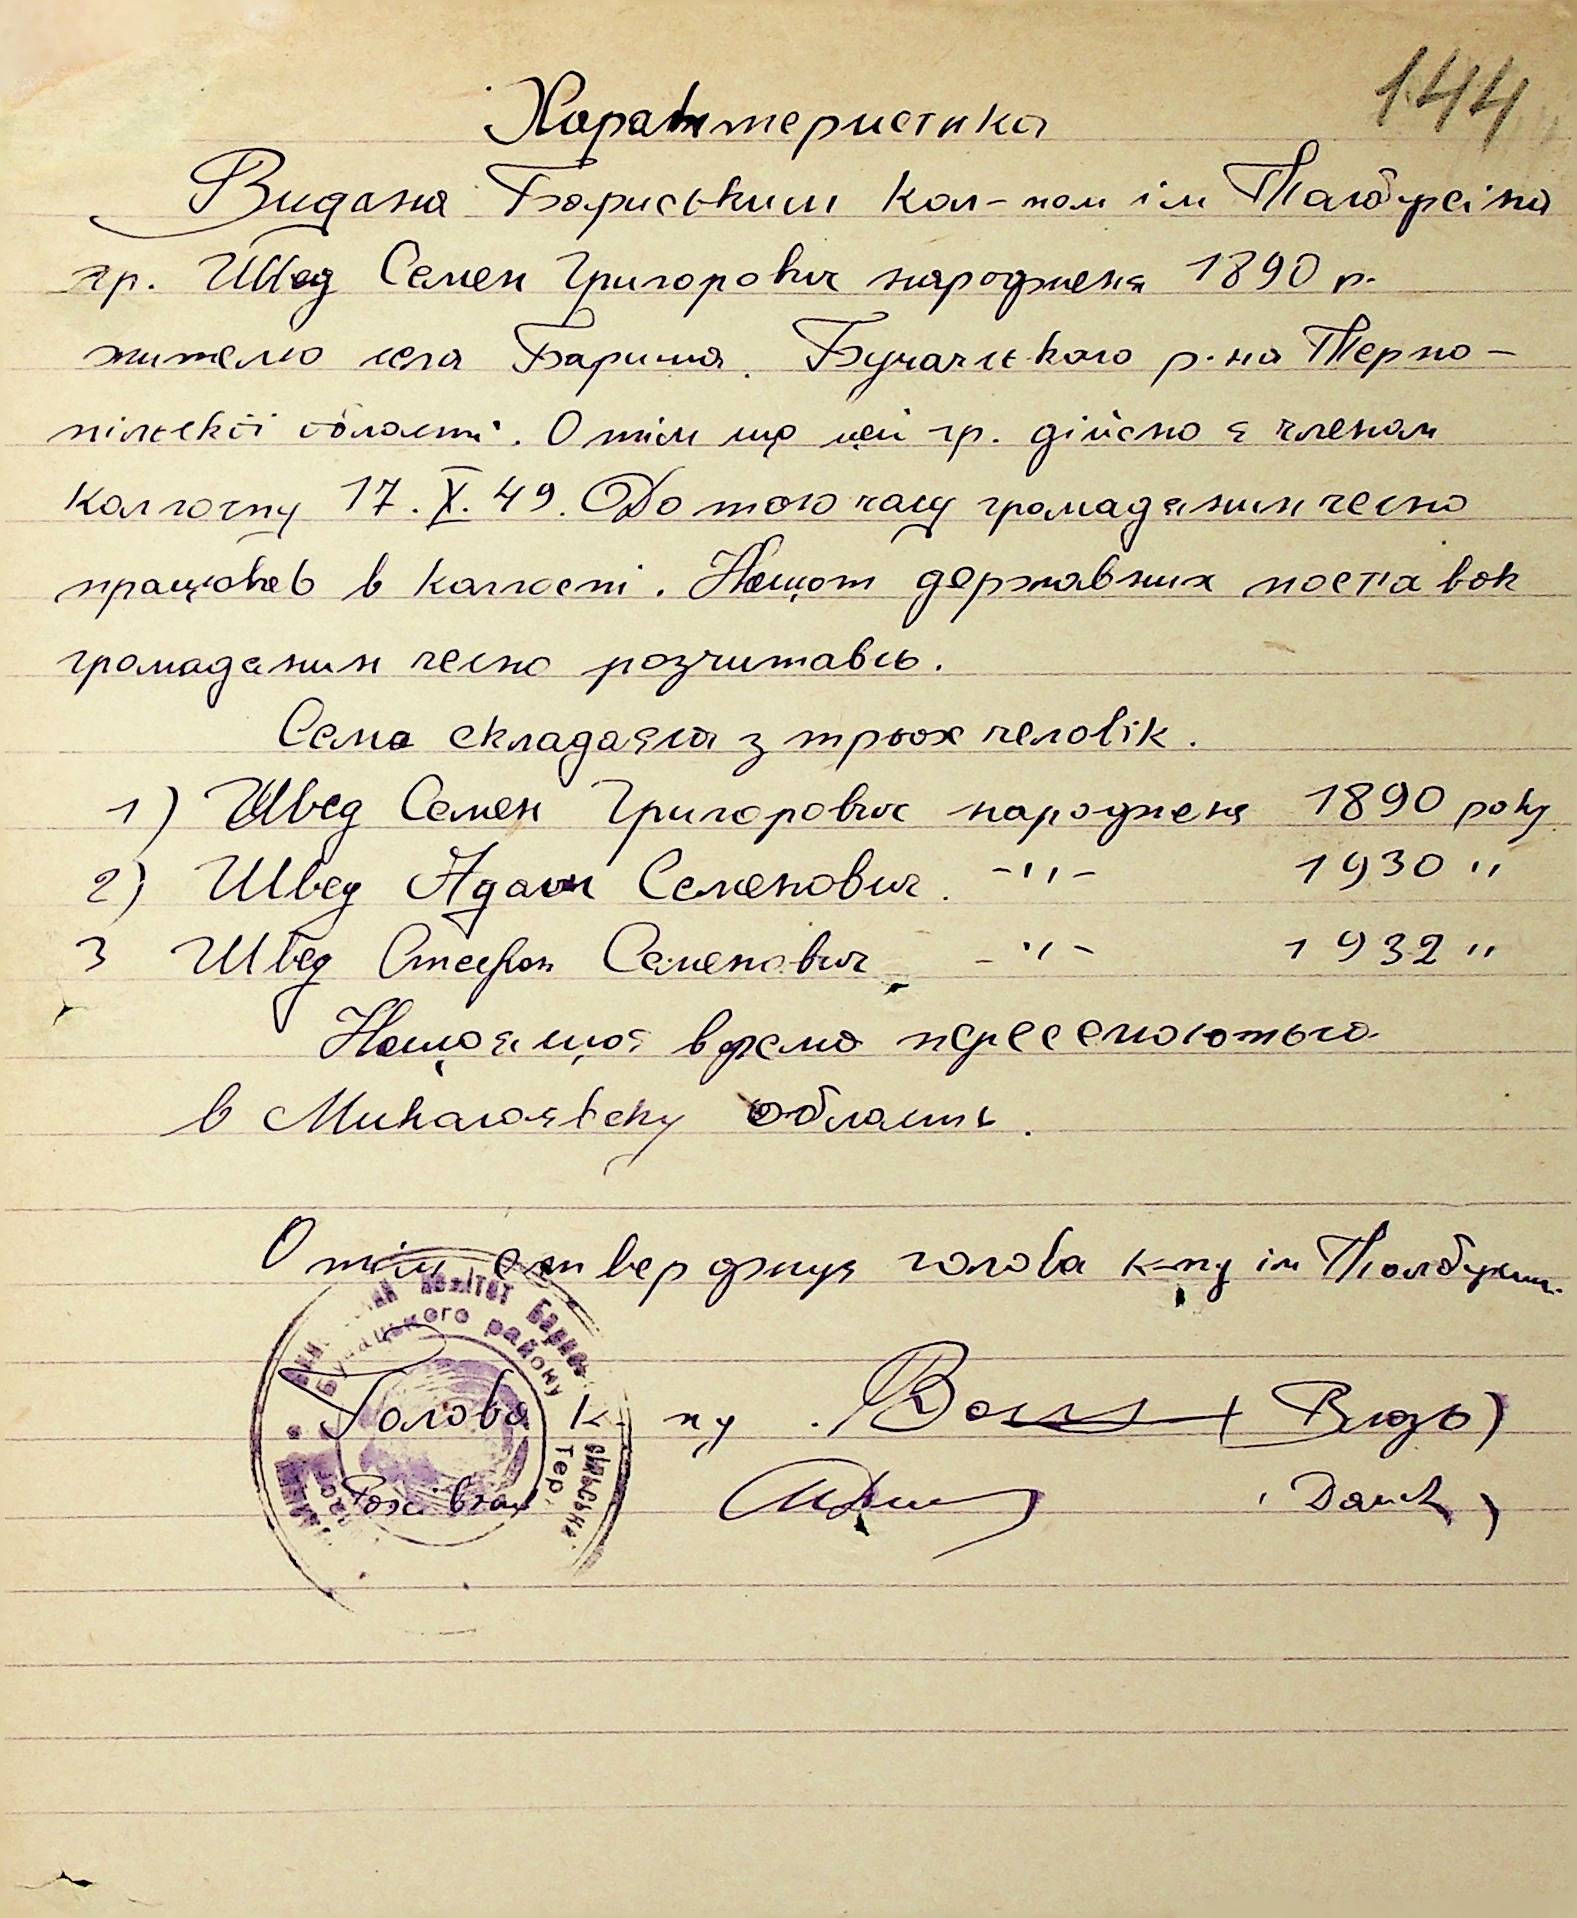 144
Характеристика
Видана Бориським кол-пом ім Толбухіна
гр. Швед Семен Григорович народженя 1890 р.
жителю села Бариша. Бучачського р-на Терно-
пільскої області. О тім що цей гр. дійсно є членом
колгоспу 17. X. 49. До того часу громадянин чесно
працював в колгоспі. Нащот державних поставок
громадянин чесно розчитавсь.
Семя складаєця з трьох человік.
1) Швед Семен Григорович народженя 1890 року
2) Швед Адам Семенович. -"- 1930 "
3 Швед Стефан Семенович -"- 1932 "
Нащоящоє время переселюютьса
в Миколаєвску область.
О тім стверджує голова к-пу ім Толбухіна
Голова к-пу ( Влозь )
комітет
Бучацького району
сільської
Тер